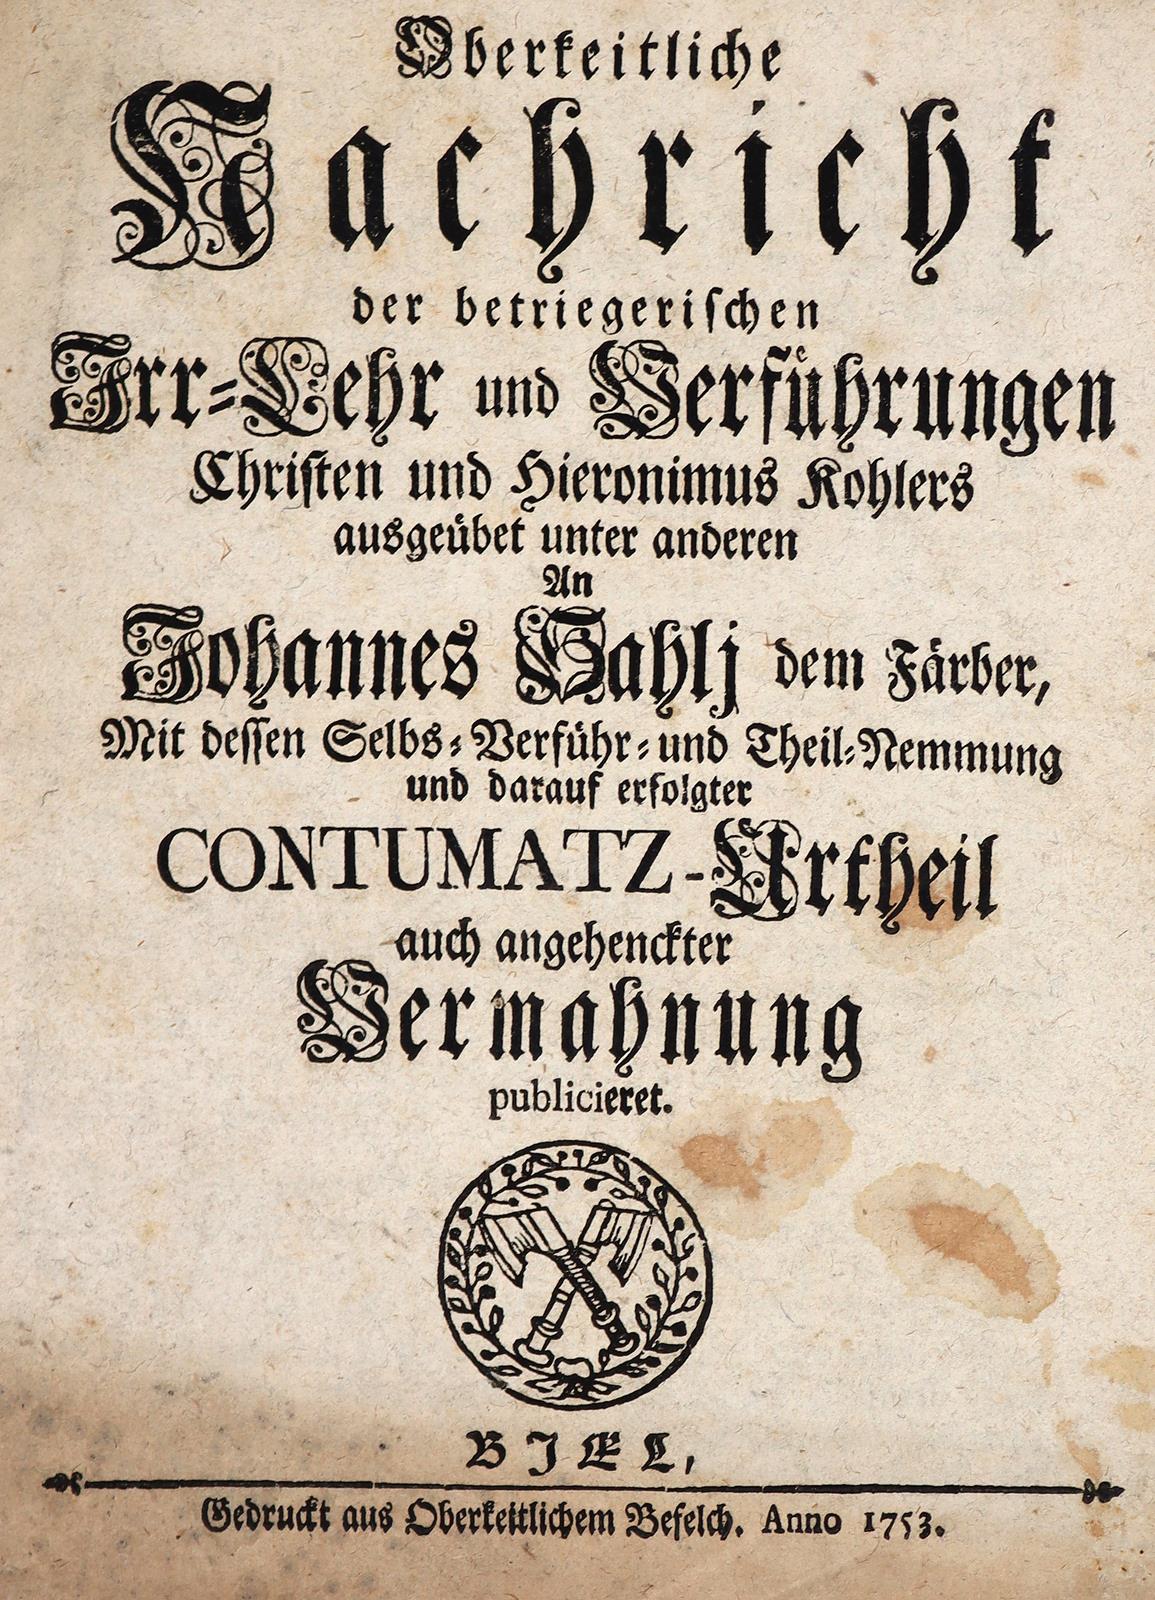 Oberkeitliche
Nachricht
der betriegerischen
Irr-Lehr und Verführungen
Christen und Hieronimus Kohlers
ausgeübet unter anderen
An
Johannes Sahlj dem Färber,
Mit dessen Selbs-Verführ-und Theil-Nemmung
und darauf erfolgter
CONTUMATZ-Urtheil
auch angehenckter
Vermahnung
publicieret.
BJEL,
Gedruckt aus Oberkeitlichem Befelch. Anno 1753.